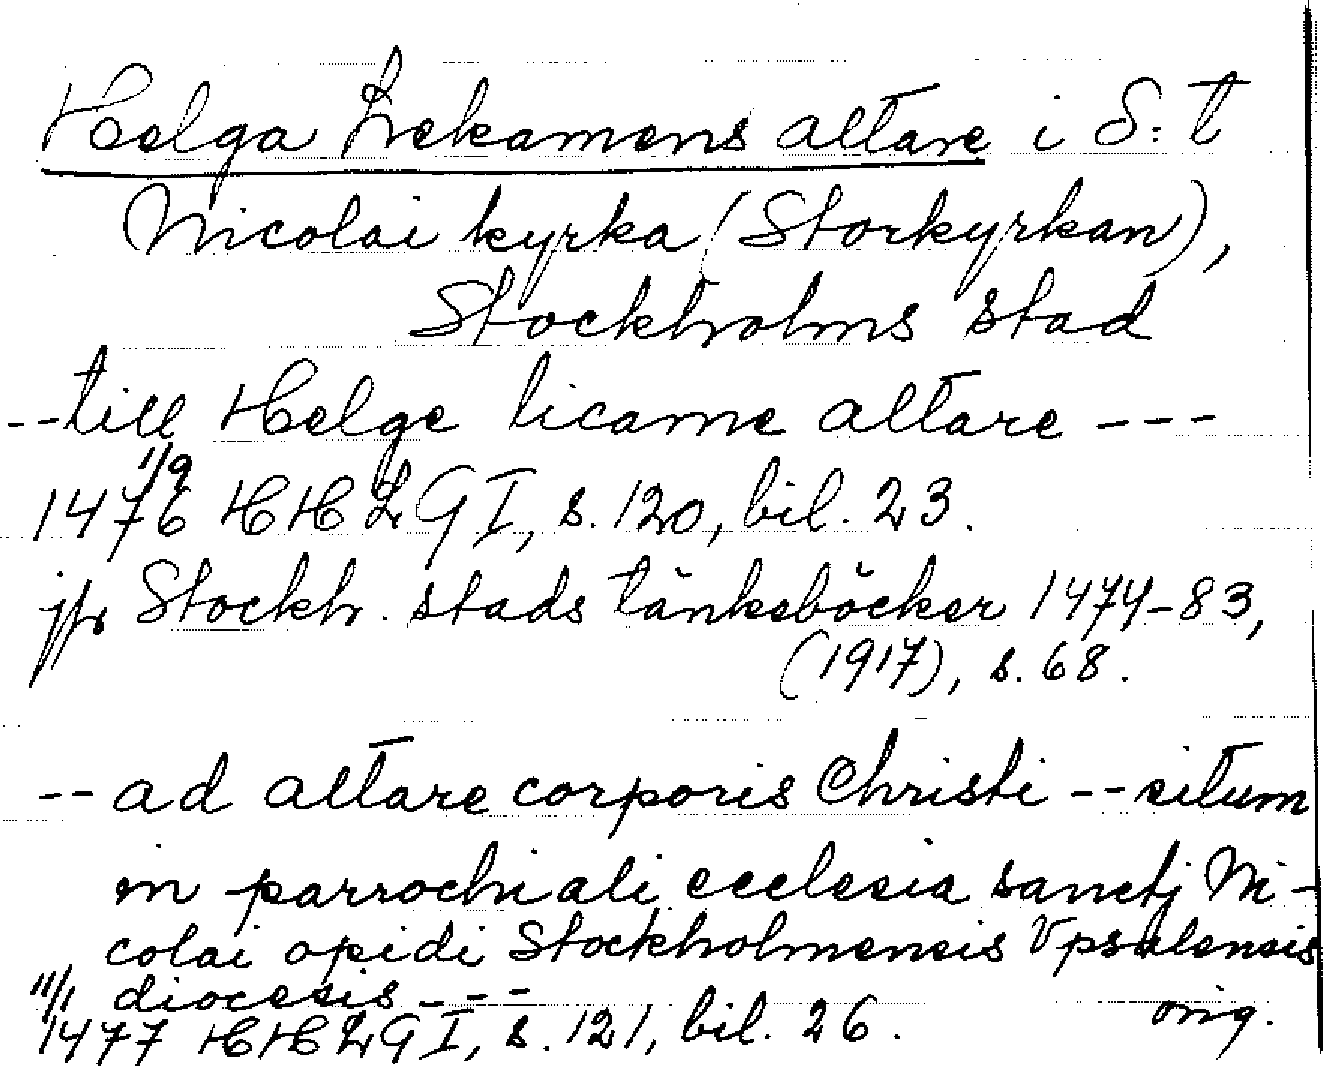 Helga Lekamens altare i S:t
Nicolai kyrka (Storkyrkan),
Stockholms stad
--till Helge licame altare ---
1/9
1476 HHLG I, s. 120, bil. 23.
jfr Stockh. stads tänkeböcker 1474-83,
(1917), s. 68.
-- ad altare corporis Christi -- situm
in parrochiali ecclesia sanctj Ni-
colai opidi Stockholmensis Vpsalensis
11/1 diocesis ---
1477 HHLG I, s. 121, bil. 26. orig.